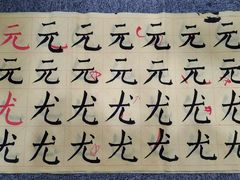 元元元元元元元
元元元元元元元
尤尤尤尤尤尤尤
尤尤尤尤尤尤尤